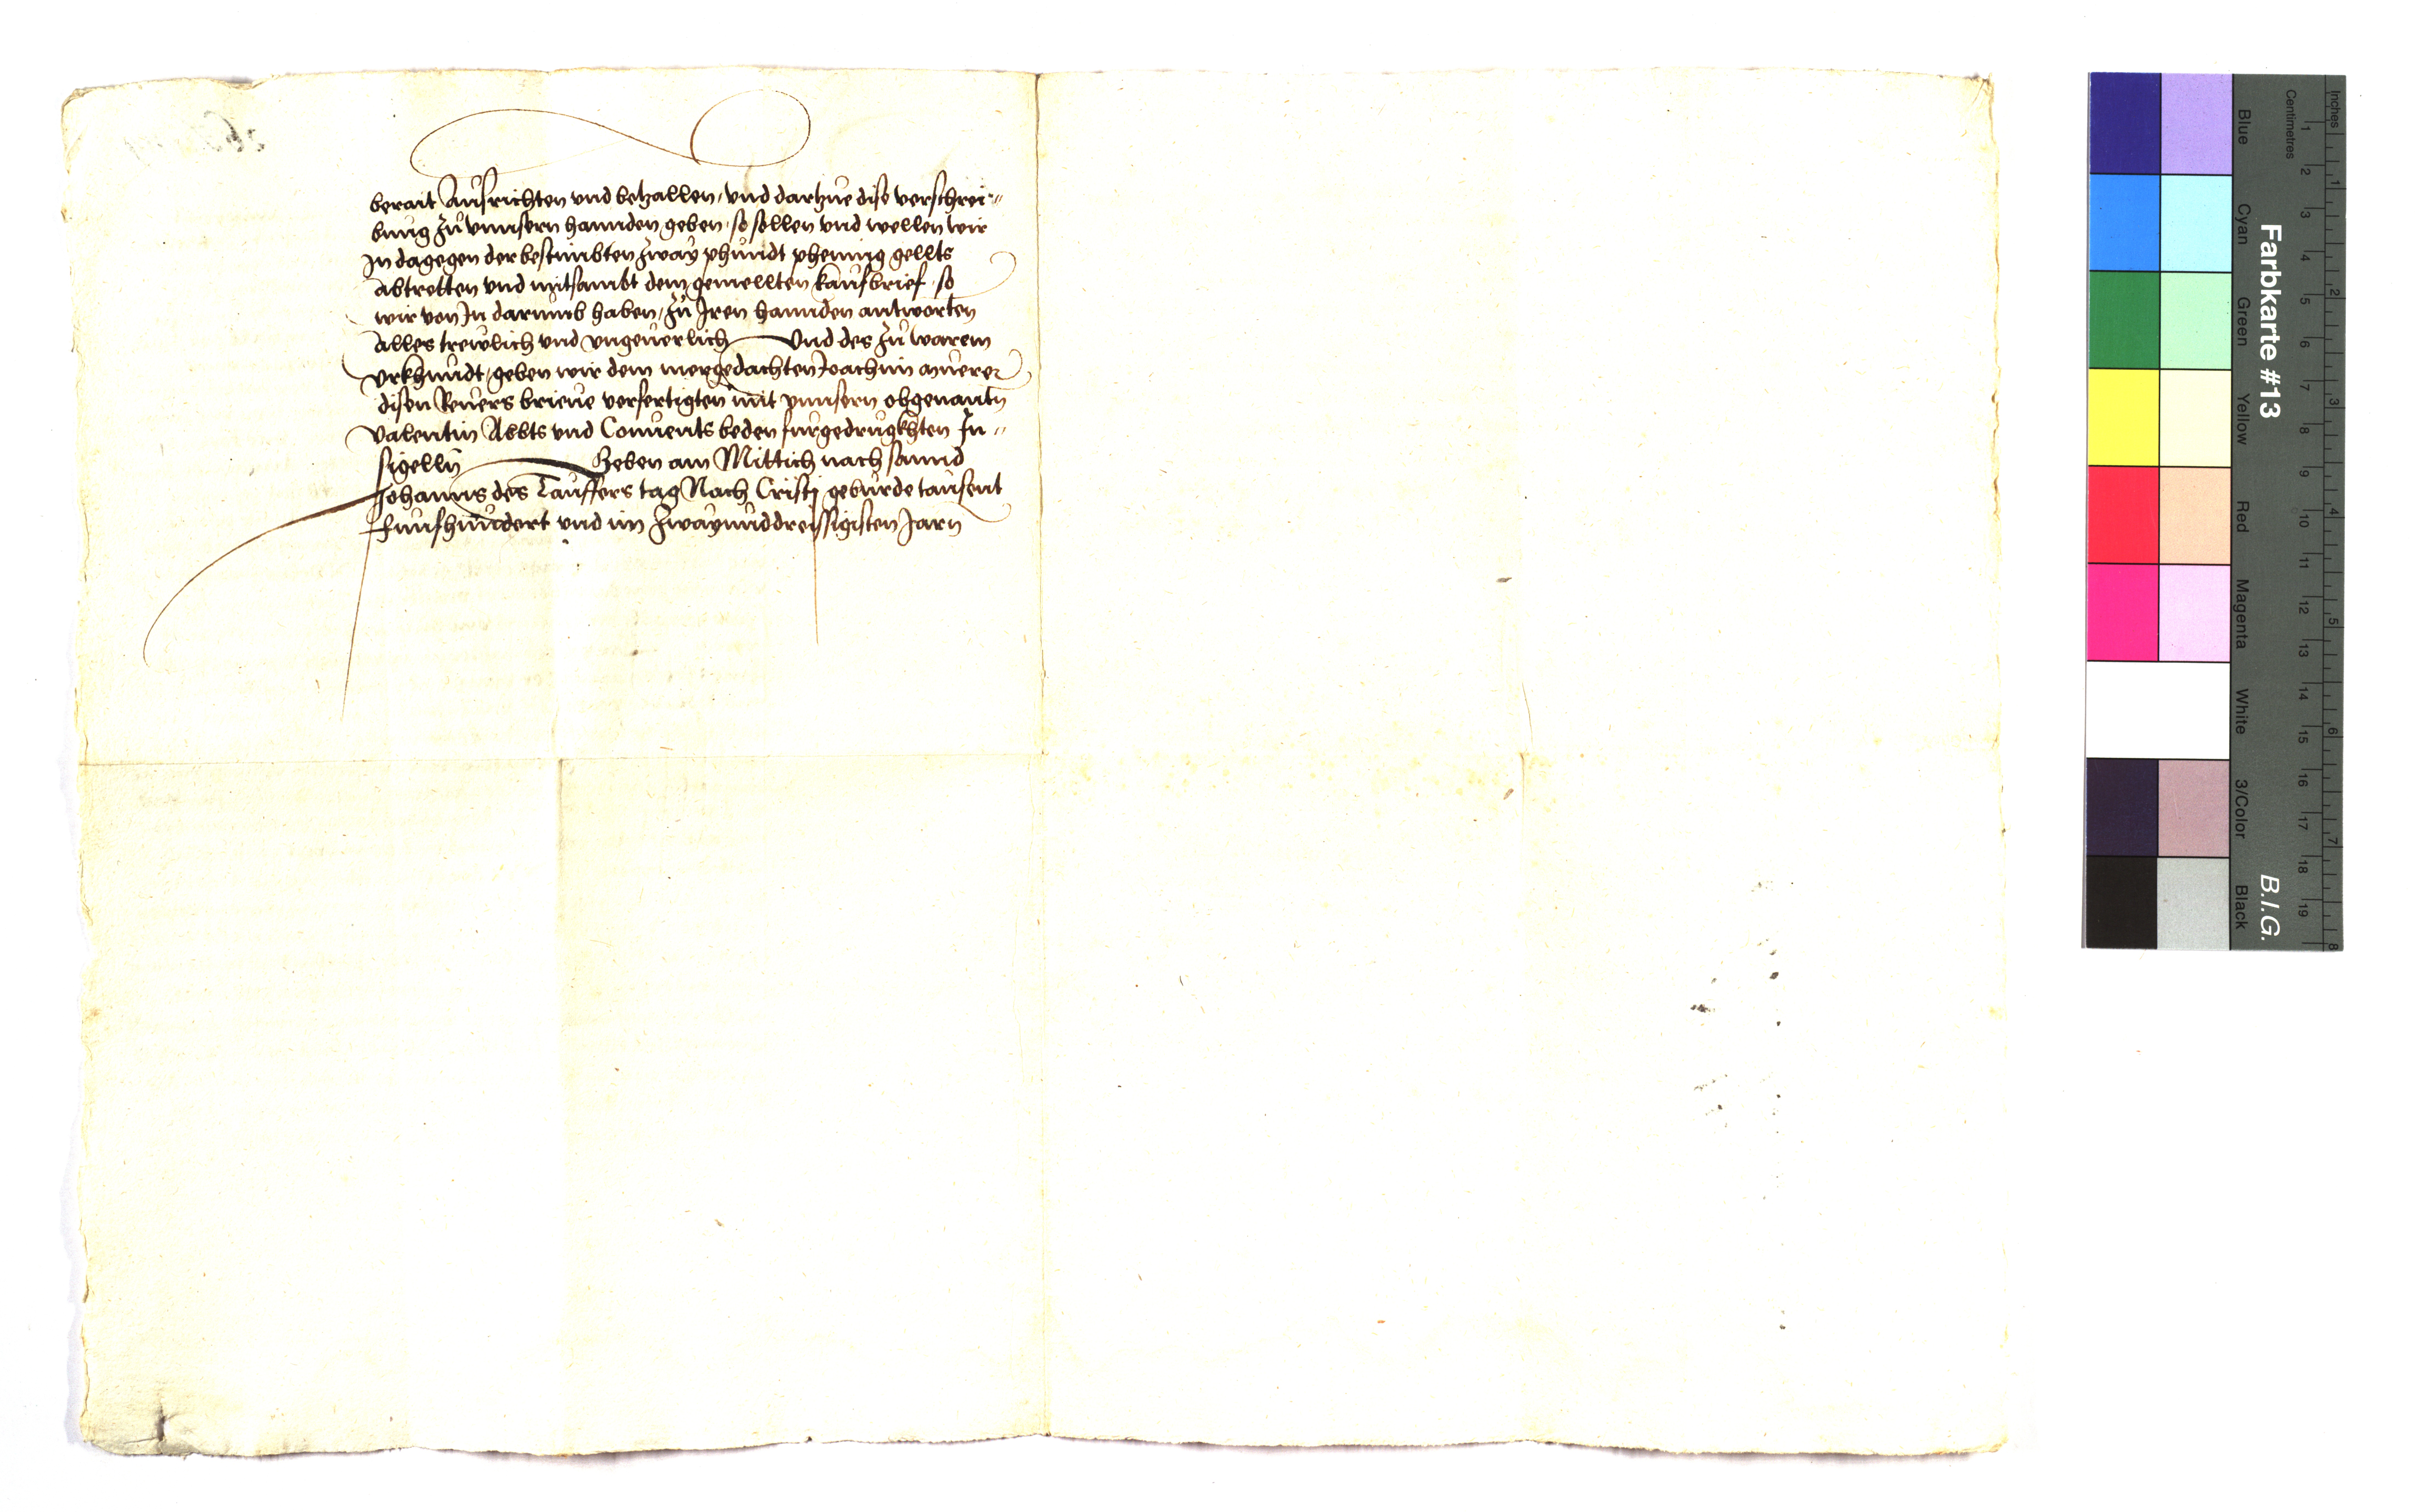 berait Aufrichten vnd betzallen, vnd dartzue dise verschrei„
bung zu vnnsern hannden geben, so sollen vnd wellen wir
In dagegen der bestimbten zway phundt phening gellts
Abtretten vnd mitsambt dem gemellten kaufbrief, so
wir von In darumb haben, zu Iren hannden antworten
Alles trewlich vnd vngeuerlich Vnd des zu warem
vrkhundt, geben wir dem mergedachten Joachim
disen Reuers brieue verfertigten mit vnnsern obgenantn
Valentin Abbts vnd Conuents beden furgedrugkhten In„
sigelln Geben am Mittich nach sannd
Johanns des Tauffers tag Nach Cristj geburde tausent
Funfhundert vnd im zwayunddreissigisten Jarn
Farbkarte #13
B.I.G.
Inches
Centimetres
Blue
Cyan
Green
Yellow
Red
Magenta
White
3/Color
Black
1 2 3 4 5 6 7 8 9 10 11 12 13 14 15 16 17 18 19
1 2 3 4 5 6 7 8